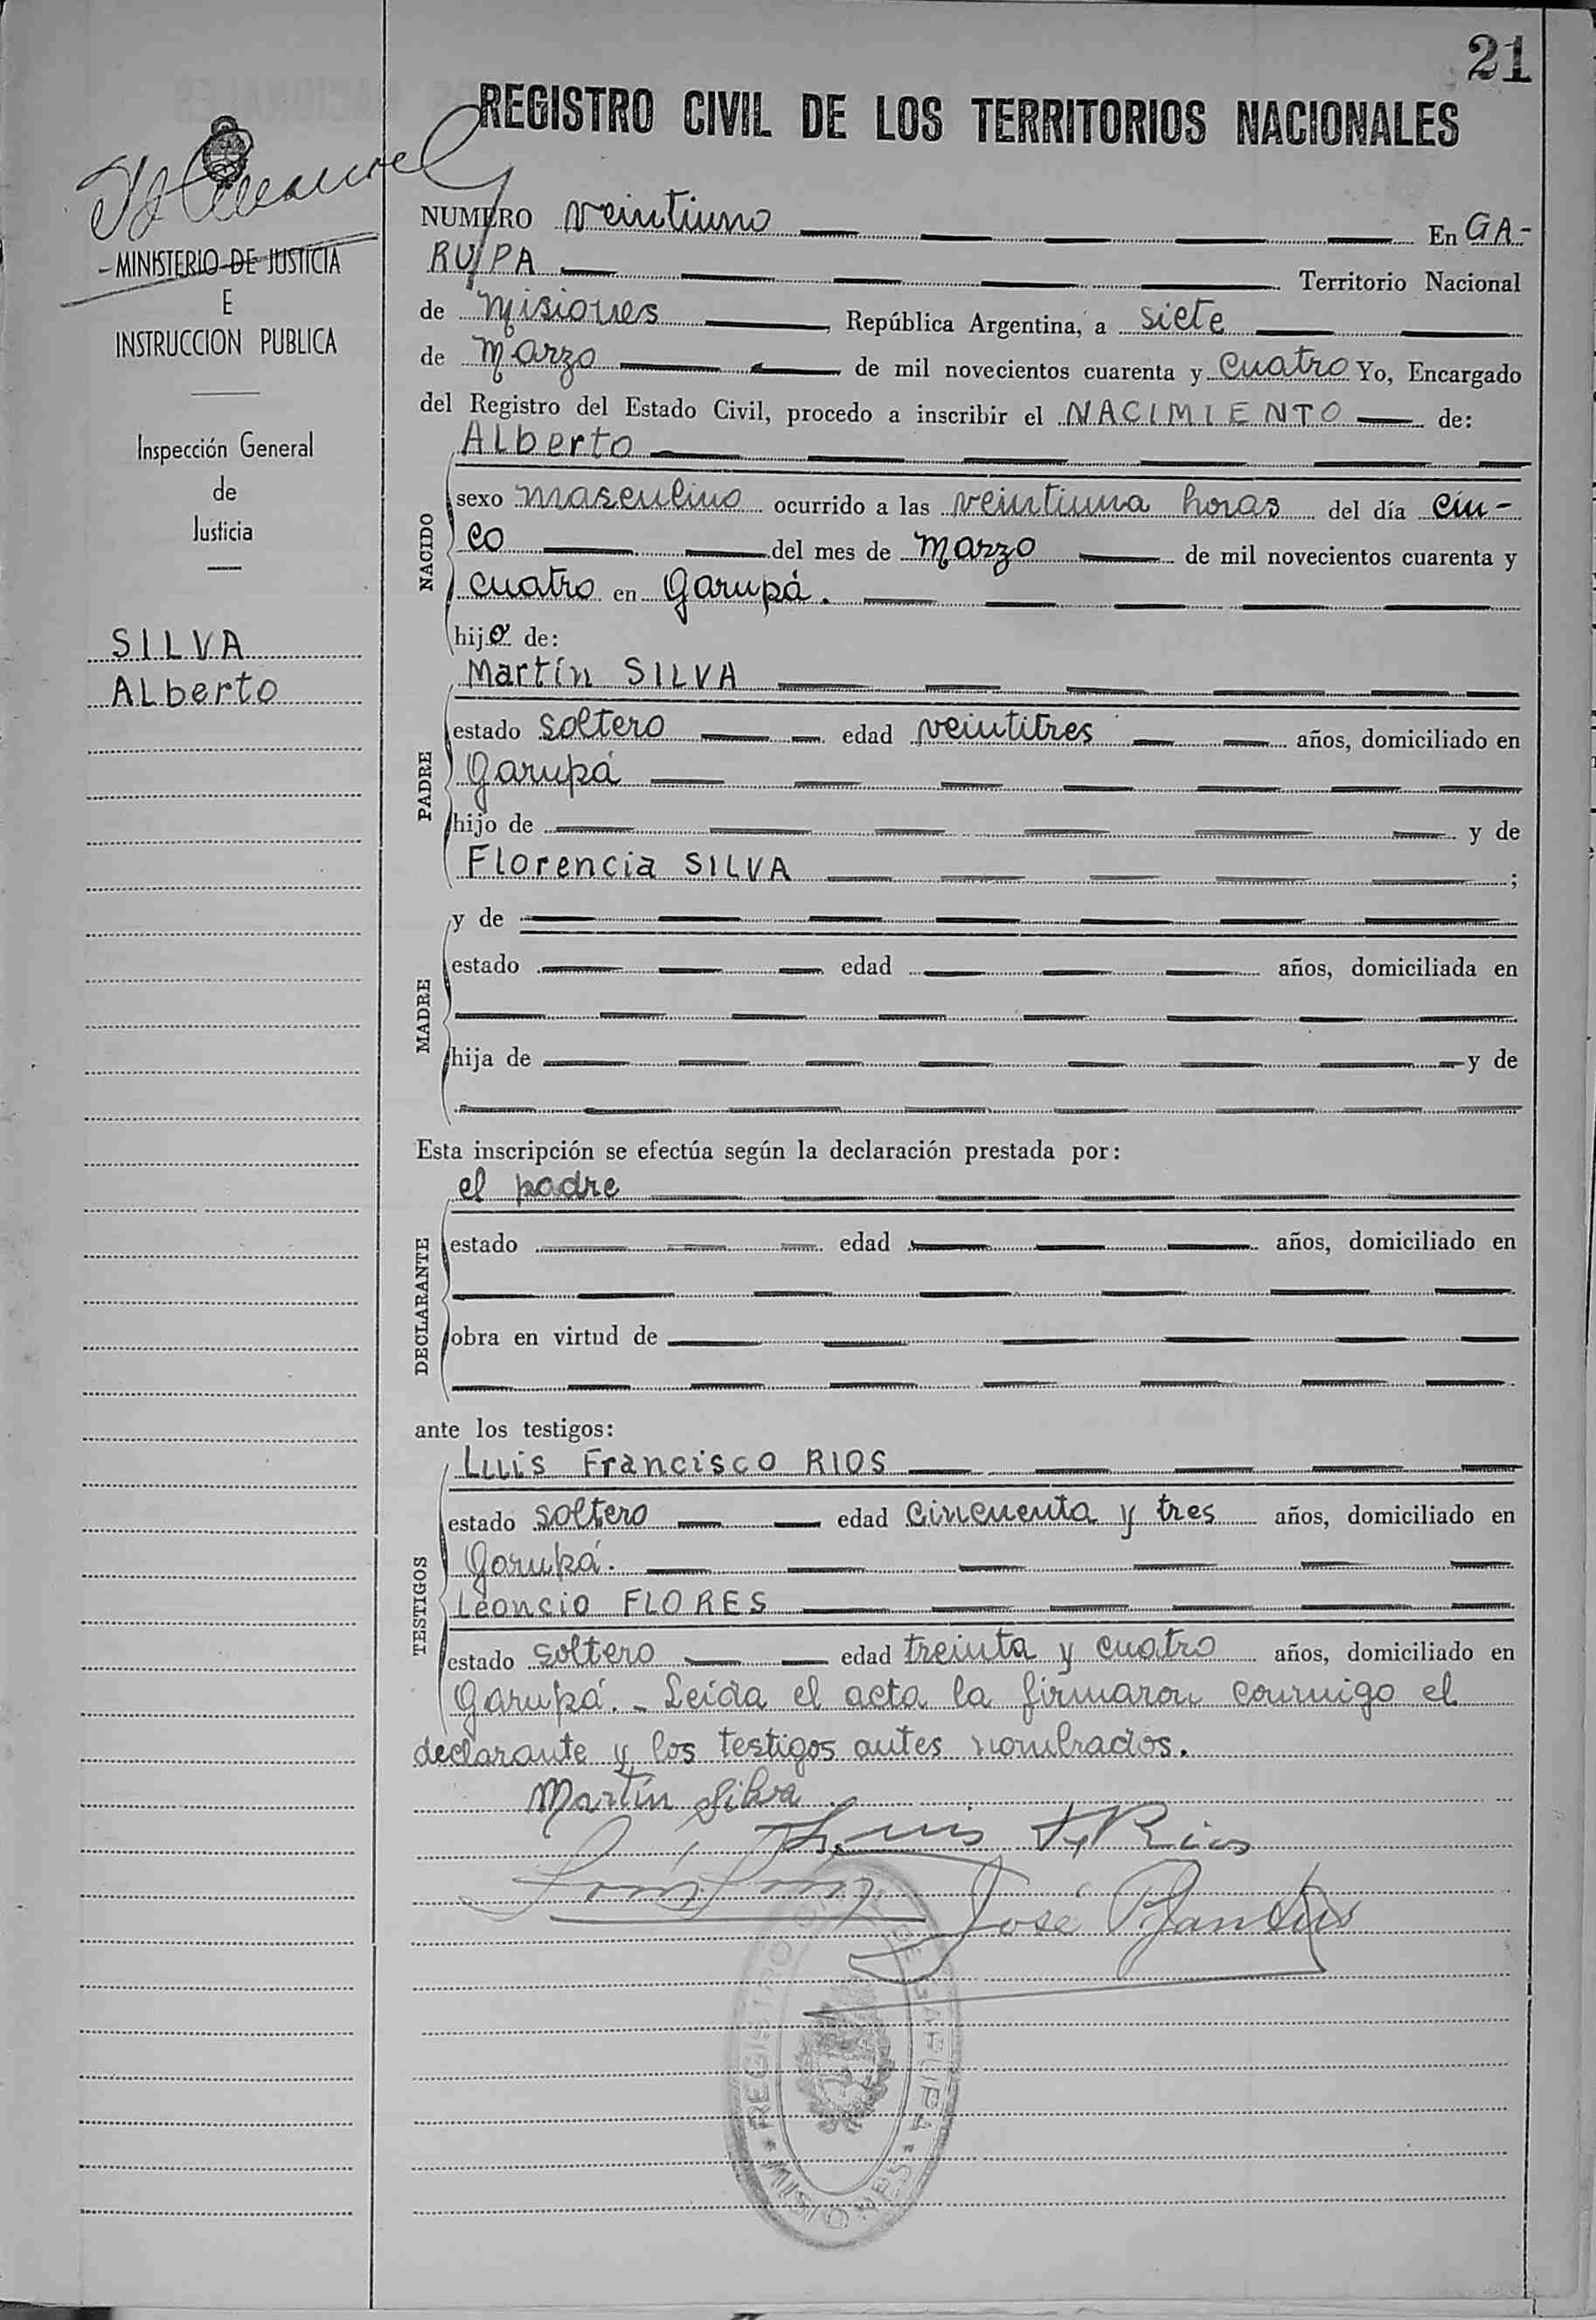 21
REGISTRO CIVIL DE LOS TERRITORIOS NACIONALES
MINISTERIO DE JUSTICIA
E
INSTRUCCION PUBLICA
Inspección General
de
Justicia
SILVA
Alberto
NUMERO veintiuno En GA-
RUPA Territorio Nacional
de Misiones, República Argentina, a siete
de Marzo de mil novecientos cuarenta y cuatro Yo, Encargado
del Registro del Estado Civil, procedo a inscribir el NACIMIENTO de:
Alberto
NACIDO
sexo masculino ocurrido a las veintiuna horas del día cin-
co del mes de Marzo de mil novecientos cuarenta y
cuatro en Garupá.
hijo de:
Martín SILVA
PADRE
estado soltero edad veintitres años, domiciliado en
Garupá
hijo de y de
Florencia SILVA ;
MADRE
y de
estado edad años, domiciliada en
hija de y de
Esta inscripción se efectúa según la declaración prestada por:
el padre
DECLARANTE
estado edad años, domiciliado en
obra en virtud de
ante los testigos:
Luis Francisco RIOS
TESTIGOS
estado soltero edad cincuenta y tres años, domiciliado en
Garupá.
Leoncio FLORES
estado soltero edad treinta y cuatro años, domiciliado en
Garupá. - Leída el acta la firmaron conmigo el
declarante y los testigos antes nombrados.
Martín Silva
Luis F. Rios
José
REGISTRO CIVIL DE GARUPA
* MISIONES *